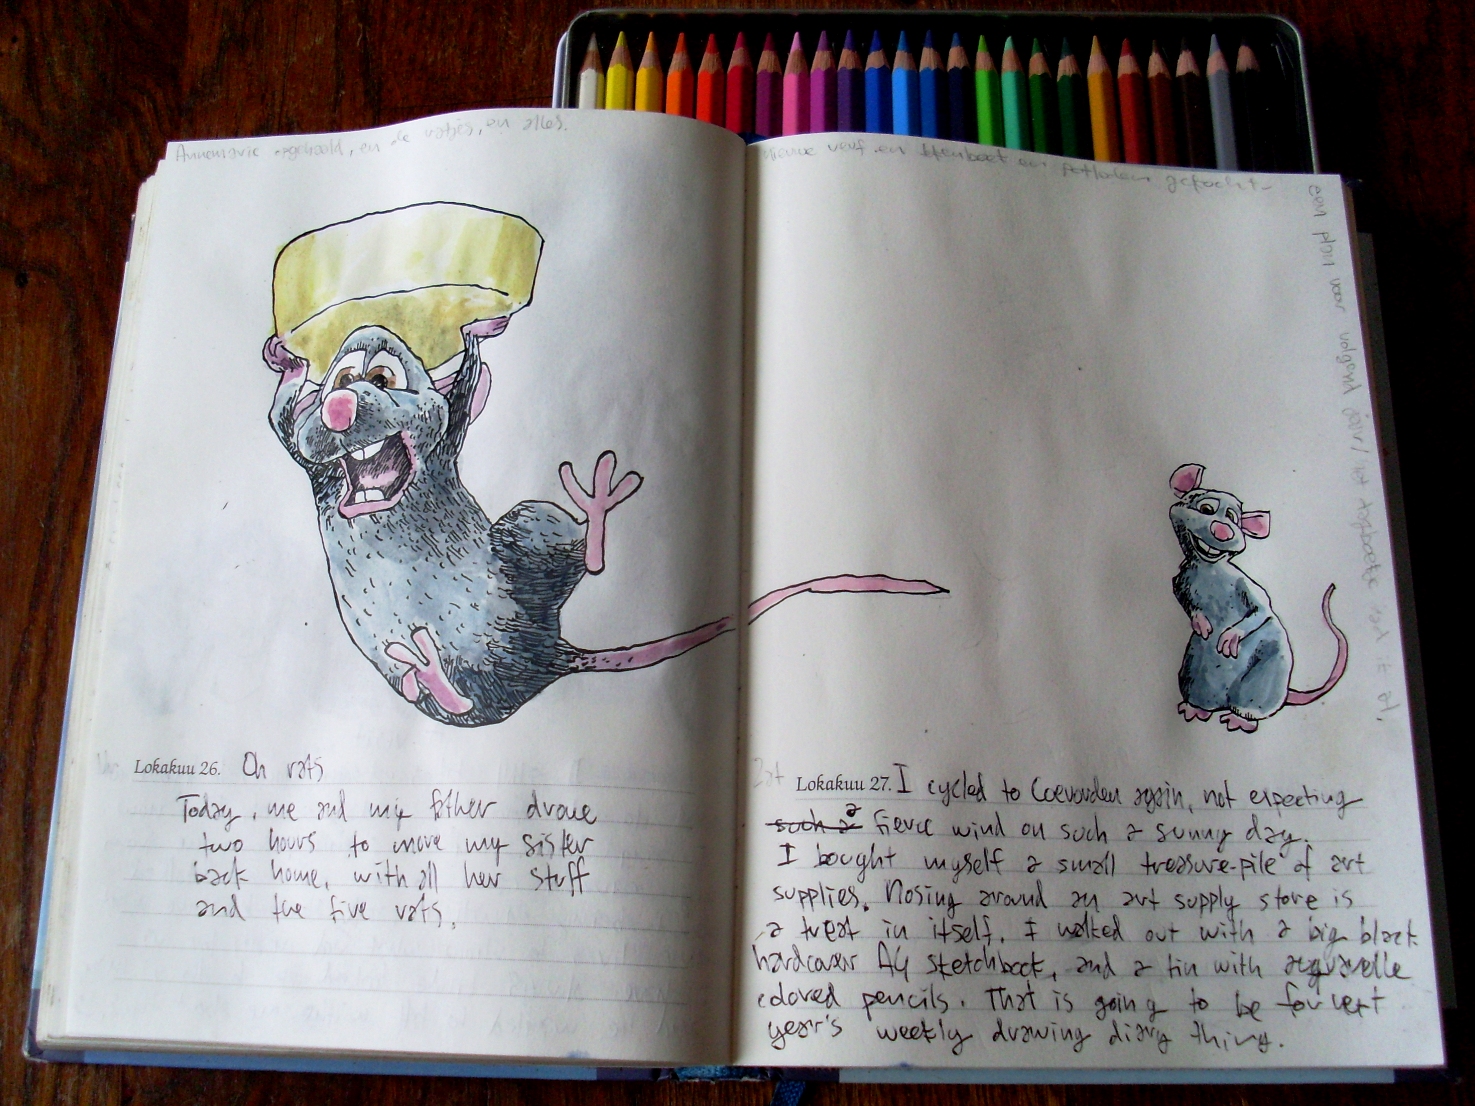 Annemarie opgehaald, en de ratjes, en alles.
Lokakuu 26. Oh rats
Today, me and my father drove
two hours to move my sister
back home, with all her stuff
and the five rats.
nieuwe verf en en potloden gekocht
een plan voor volgend jaar
Lokakuu 27. I cycled to Coevorden again, not expecting
such a a fierce wind on such a sunny day.
I bought myself a small treasure-pile of art
supplies. Nosing around an art supply store is
a treat in itself. I walked out with a big black
hardcover A4 sketchbook, and a tin with aquarelle
colored pencils. That is going to be for next
year's weekly drawing diary thing.